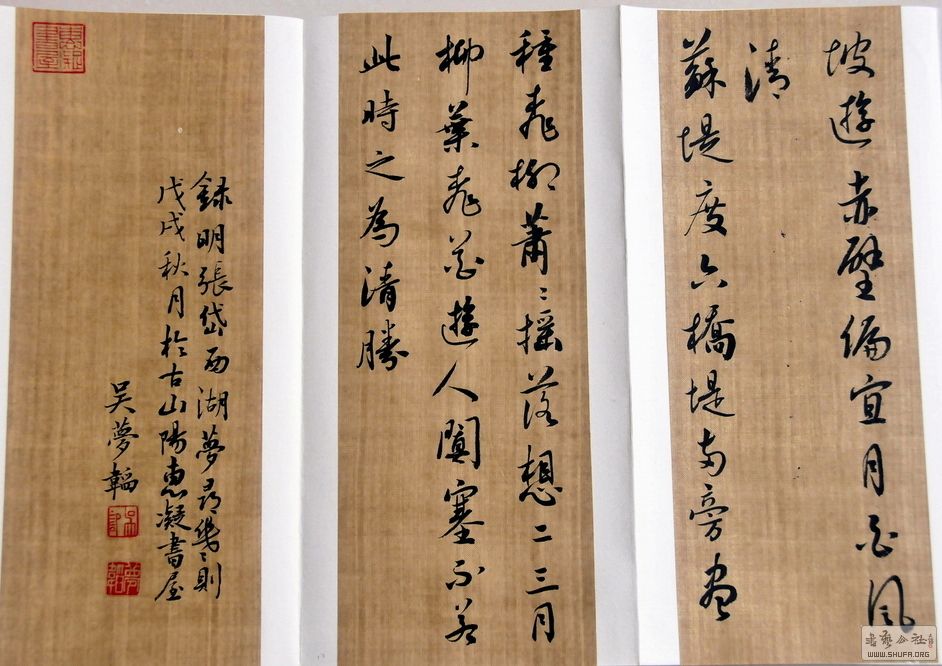 坡遊赤壁偏宜月白風
清
蘇堤度六橋堤兩旁盡
種桃柳蕭〻搖落想二三月
柳葉桃花遊人闐塞不若
此時之為清勝
錄明張岱西湖夢尋幾則
戊戌秋月於古山陽惠凝書屋
吳夢韜
夢韜
書藝公社
WWW.SHUFA.ORG